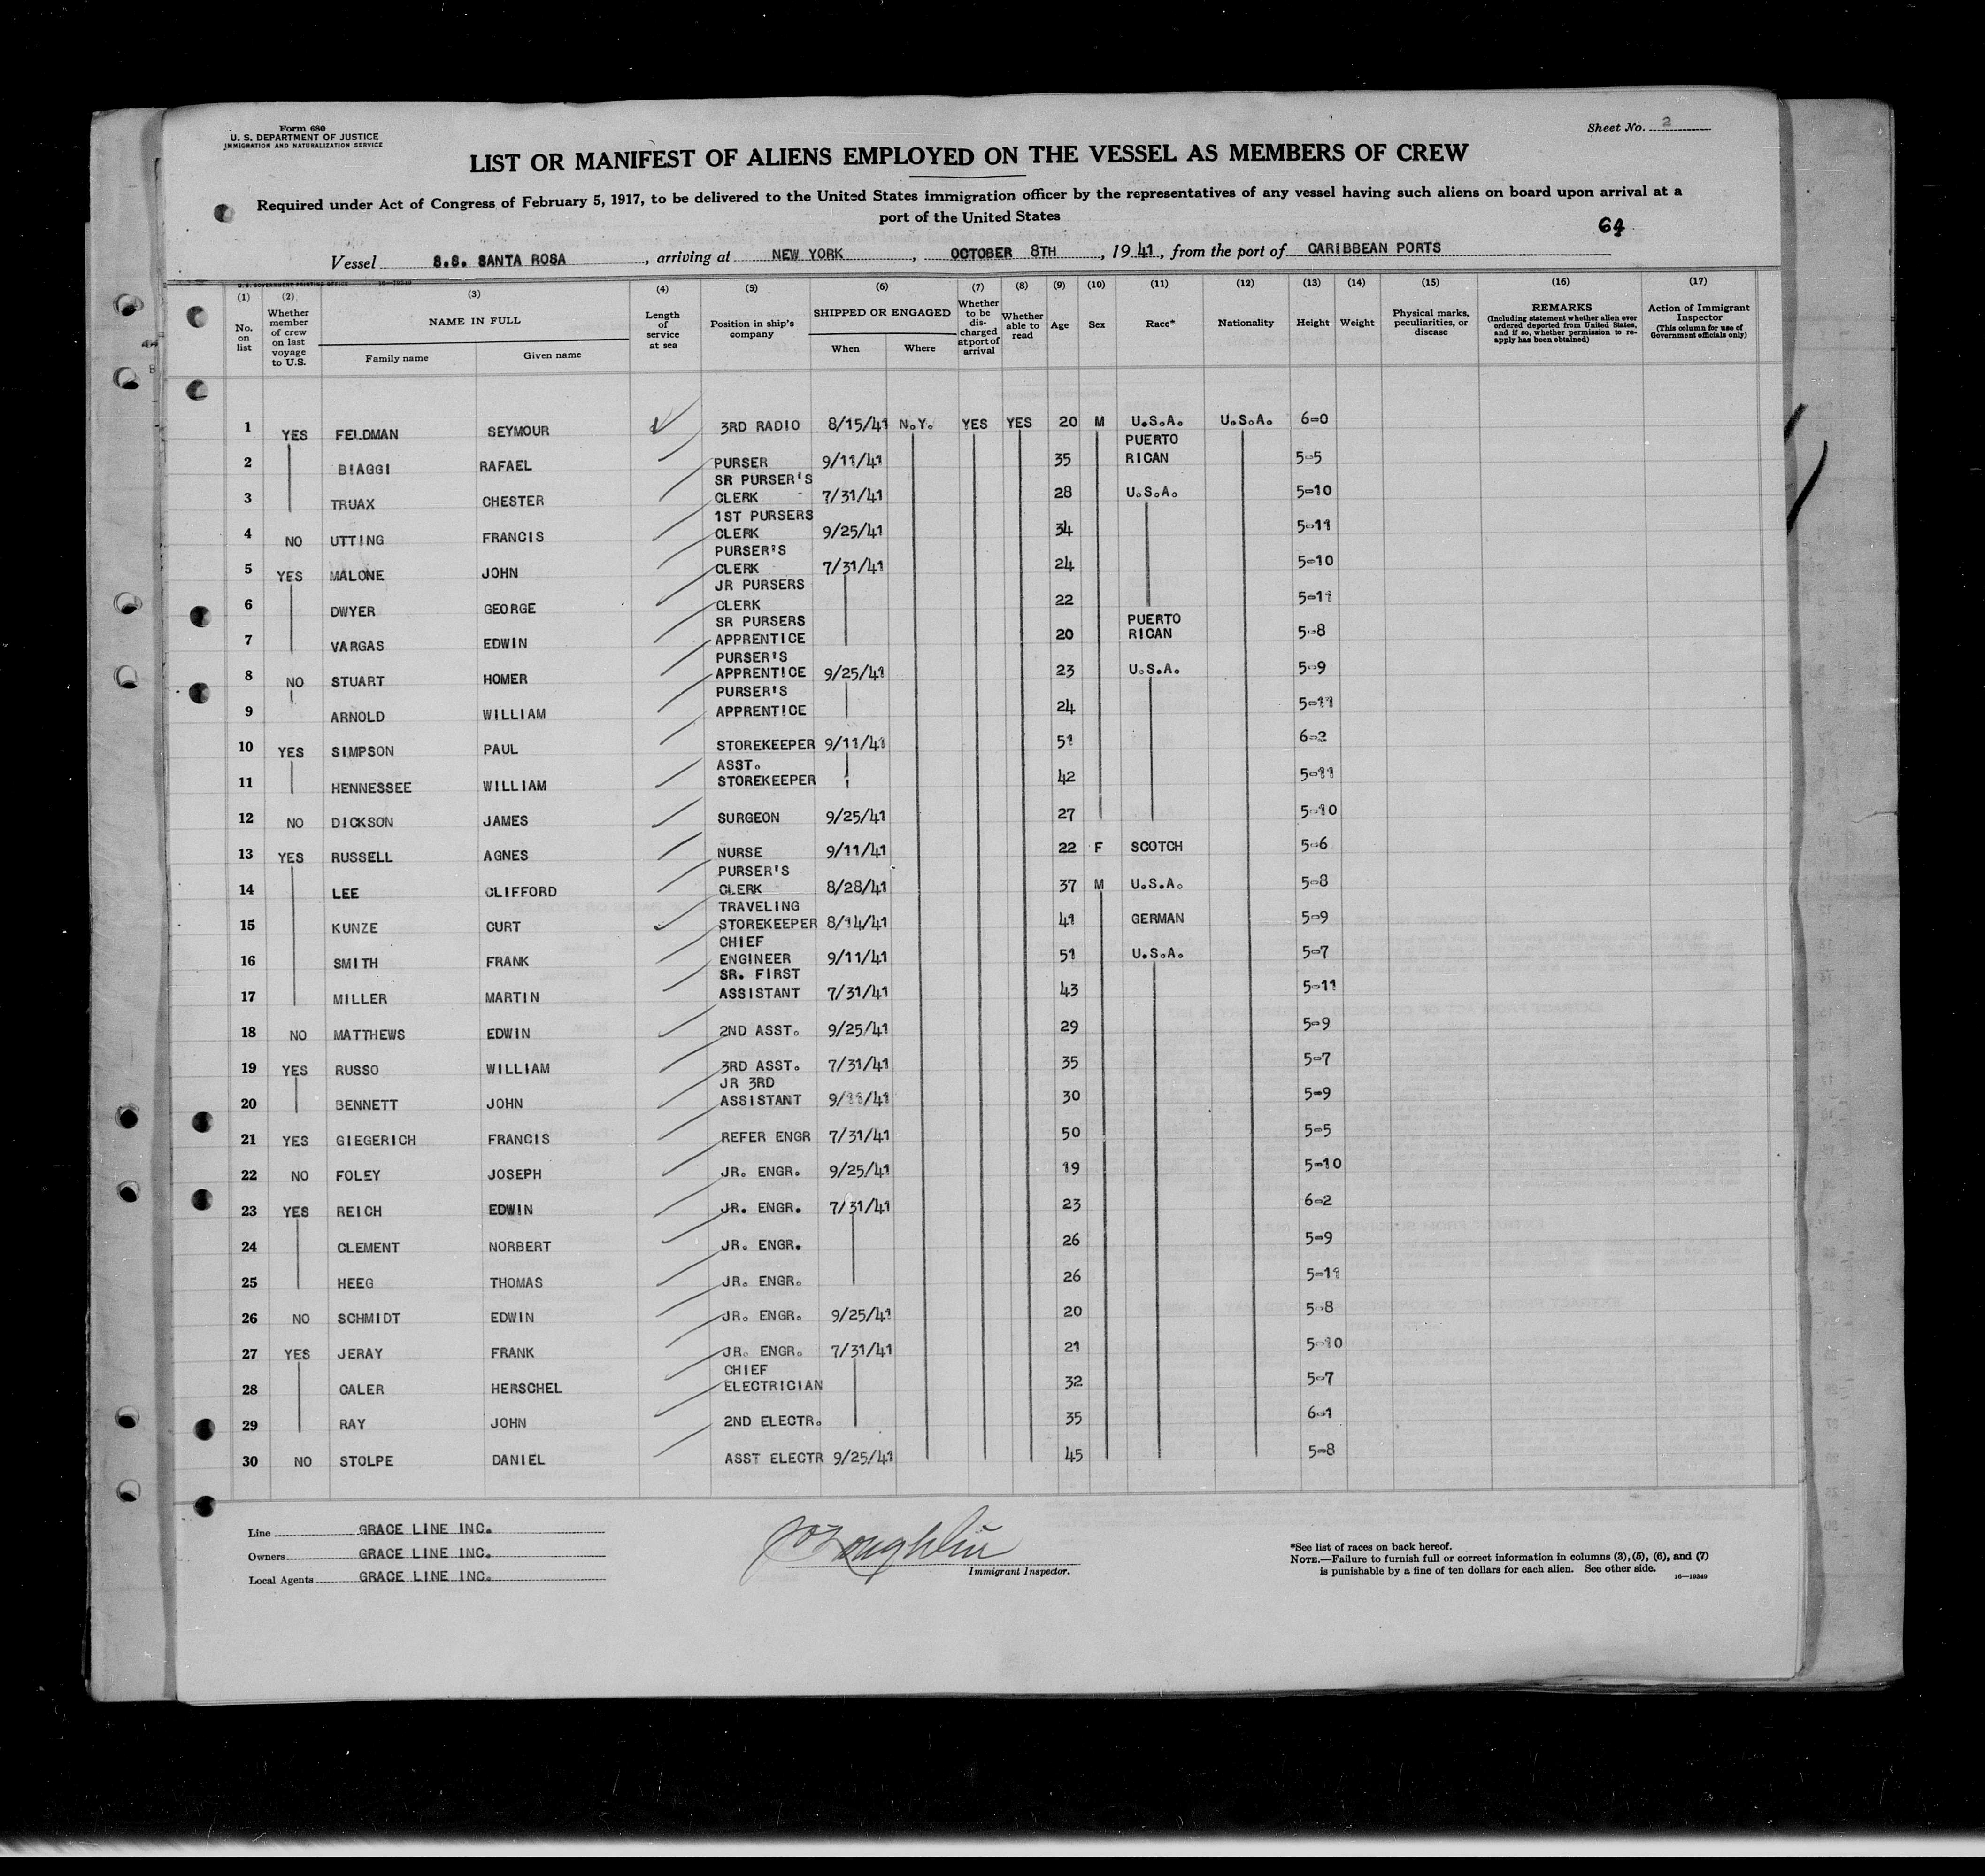 Form 680
U. S. DEPARTMENT OF JUSTICE
IMMIGRATION AND NATURALIZATION SERVICE
Sheet No. 2
LIST OR MANIFEST OF ALIENS EMPLOYED ON THE VESSEL AS MEMBERS OF CREW
Required under Act of Congress of February 5, 1917, to be delivered to the United States immigration officer by the representatives of any vessel having such aliens on board upon arrival at a
port of the United States
64
Vessel S.S. SANTA ROSA, arriving at NEW YORK, OCTOBER 8TH, 1941, from the port of CARIBBEAN PORTS
U. S. GOVERNMENT PRINTING OFFICE 16—19349
(1) (2) (3) (4) (5) (6) (7) (8) (9) (10) (11) (12) (13) (14) (15) (16) (17)
No. on list
Whether member of crew on last voyage to U.S.
NAME IN FULL
Family name
Given name
Length of service at sea
Position in ship's company
SHIPPED OR ENGAGED
When
Where
Whether to be discharged at port of arrival
Whether able to read
Age
Sex
Race*
Nationality
Height
Weight
Physical marks, peculiarities, or disease
REMARKS
(Including statement whether alien ever ordered deported from United States, and if so, whether permission to reapply has been obtained)
Action of Immigrant Inspector
(This column for use of Government officials only)
1 YES FELDMAN SEYMOUR 3RD RADIO 8/15/41 N.Y. YES YES 20 M U.S.A. U.S.A. 6-0
2 BIAGGI RAFAEL PURSER 9/11/41 35 PUERTO RICAN 5-5
3 TRUAX CHESTER SR PURSER'S CLERK 7/31/41 28 U.S.A. 5-10
4 NO UTTING FRANCIS 1ST PURSERS CLERK 9/25/41 34 5-11
5 YES MALONE JOHN PURSER'S CLERK 7/31/41 24 5-10
6 DWYER GEORGE JR PURSERS CLERK 22 5-11
7 VARGAS EDWIN SR PURSERS APPRENTICE 20 PUERTO RICAN 5-8
8 NO STUART HOMER PURSER'S APPRENTICE 9/25/41 23 U.S.A. 5-9
9 ARNOLD WILLIAM PURSER'S APPRENTICE 24 5-11
10 YES SIMPSON PAUL STOREKEEPER 9/11/41 51 6-2
11 HENNESSEE WILLIAM ASST. STOREKEEPER 42 5-11
12 NO DICKSON JAMES SURGEON 9/25/41 27 5-10
13 YES RUSSELL AGNES NURSE 9/11/41 22 F SCOTCH 5-6
14 LEE CLIFFORD PURSER'S CLERK 8/28/41 37 M U.S.A. 5-8
15 KUNZE CURT TRAVELING STOREKEEPER 8/14/41 41 GERMAN 5-9
16 SMITH FRANK CHIEF ENGINEER 9/11/41 51 U.S.A. 5-7
17 MILLER MARTIN SR. FIRST ASSISTANT 7/31/41 43 5-11
18 NO MATTHEWS EDWIN 2ND ASST. 9/25/41 29 5-9
19 YES RUSSO WILLIAM 3RD ASST. 7/31/41 35 5-7
20 BENNETT JOHN JR 3RD ASSISTANT 9/11/41 30 5-9
21 YES GIEGERICH FRANCIS REFER ENGR 7/31/41 50 5-5
22 NO FOLEY JOSEPH JR. ENGR. 9/25/41 19 5-10
23 YES REICH EDWIN JR. ENGR. 7/31/41 23 6-2
24 CLEMENT NORBERT JR. ENGR. 26 5-9
25 HEEG THOMAS JR. ENGR. 26 5-11
26 NO SCHMIDT EDWIN JR. ENGR. 9/25/41 20 5-8
27 YES JERAY FRANK JR. ENGR. 7/31/41 21 5-10
28 CALER HERSCHEL CHIEF ELECTRICIAN 32 5-7
29 RAY JOHN 2ND ELECTR. 35 6-1
30 NO STOLPE DANIEL ASST ELECTR 9/25/41 45 5-8
Line GRACE LINE INC.
Owners GRACE LINE INC.
Local Agents GRACE LINE INC.
Immigrant Inspector.
*See list of races on back hereof.
NOTE.—Failure to furnish full or correct information in columns (3), (5), (6), and (7)
is punishable by a fine of ten dollars for each alien. See other side.
16—19349